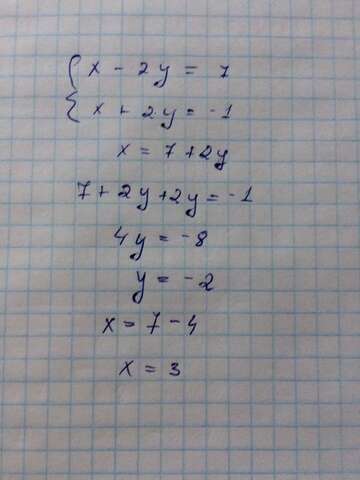 { x - 2y = 7
x + 2y = -1
x = 7 + 2y
7 + 2y + 2y = -1
4y = -8
y = -2
x = 7 - 4
x = 3